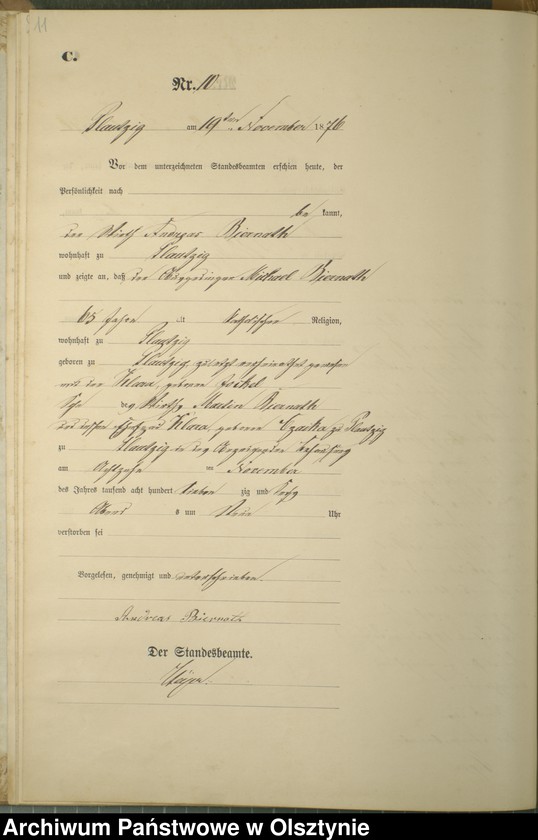 11
C.
Nr. 10
Plautzig am 19ten November 1876
Vor dem unterzeichneten Standesbeamten erschien heute, der
Persönlichkeit nach
be kannt,
der Wirth Andreas Biernath
wohnhaft zu Plautzig
und zeigte an, daß der Michael Biernath
65 Jahre alt katholischer Religion,
wohnhaft zu Plautzig
geboren zu Plautzig, zuletzt verheirathet gewesen
mit der Klara, geborene
Sohn des Wirths Martin Biernath
und dessen Ehefrau Klara, geborene Czarka zu Plautzig
zu Plautzig in des Anzeigenden Behausung
am Achtzehn ten November
des Jahres tausend acht hundert sieben zig und sechs
Abend s um Neun Uhr
verstorben sei
Vorgelesen, genehmigt und unterschrieben
Andreas Biernath
Der Standesbeamte.
Archiwum Państwowe w Olsztynie